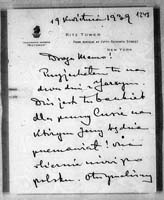 19 kwietnia 1939
RITZ TOWER
PARK AVENUE AT FIFTY-SEVENTH STREET
NEW YORK
Droga Mamo!
Przyjechałem tu na
dwa dni z Jerzym.
Dziś jest tu bankiet
dla panny Curie na
którym Jerzy będzie
przemawiał! ona
ślicznie mówi po
polsku.